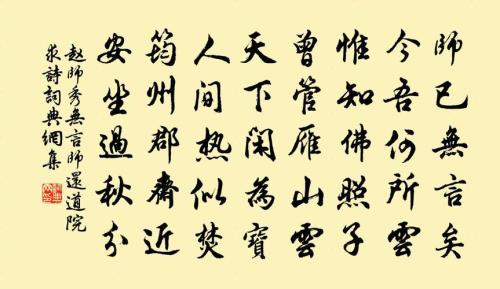 師已無言矣
今吾何所雲
惟知佛照子
曾管雁山雲
天下閑為寶
人間熱似焚
筠州郡齋近
安坐過秋分
趙師秀無言師還道院
求詩詞典網集